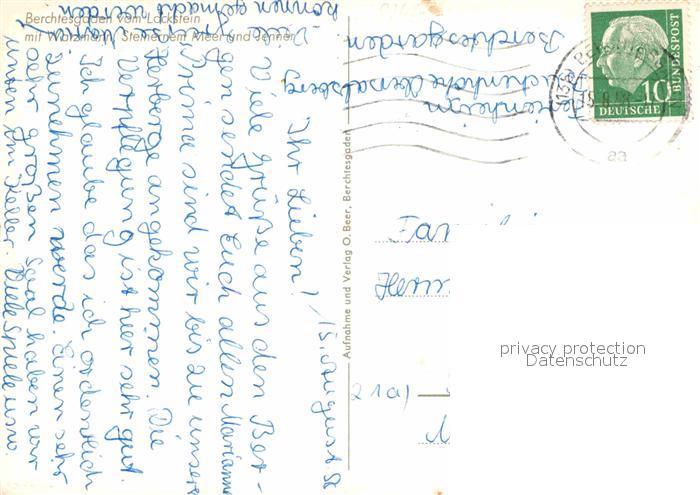 Berchtesgaden vom Lockstein
mit Watzmann, Steinernem Meer und Jenner
15. August 58
Ihr Lieben!
Viele Grüße aus den Ber-
gen sendet Euch allen Marianne
Prima sind wir bis zu unsere
Herberge angekommen. Die
Verpflegung ist hier sehr gut.
Ich glaube das ich ordentlich
zunehmen werde. Einen sehr
großen Saal haben wir
unten im Keller. Viele Spiele usw.
können gemacht werden.
Ferienheim
Buchenhöhe Obersalzberg
Berchtesgaden.
Aufnahme und Verlag O. Beer, Berchtesgaden
DEUTSCHE
BUNDESPOST
10
aa
Fam
Herm
21a)
privacy protection
Datenschutz